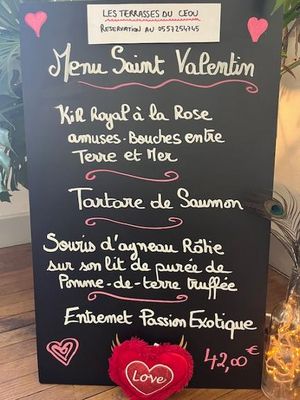 LES TERRASSES DU CEOU
RESERVATION AU 0557254745
Menu Saint Valentin
Kir Royal à la Rose
amuses-Bouches entre
Terre et Mer
Tartare de Saumon
Souris d'agneau Rôtie
sur son lit de purée de
Pomme-de-terre truffée
Entremet Passion Exotique
42,00€
Love